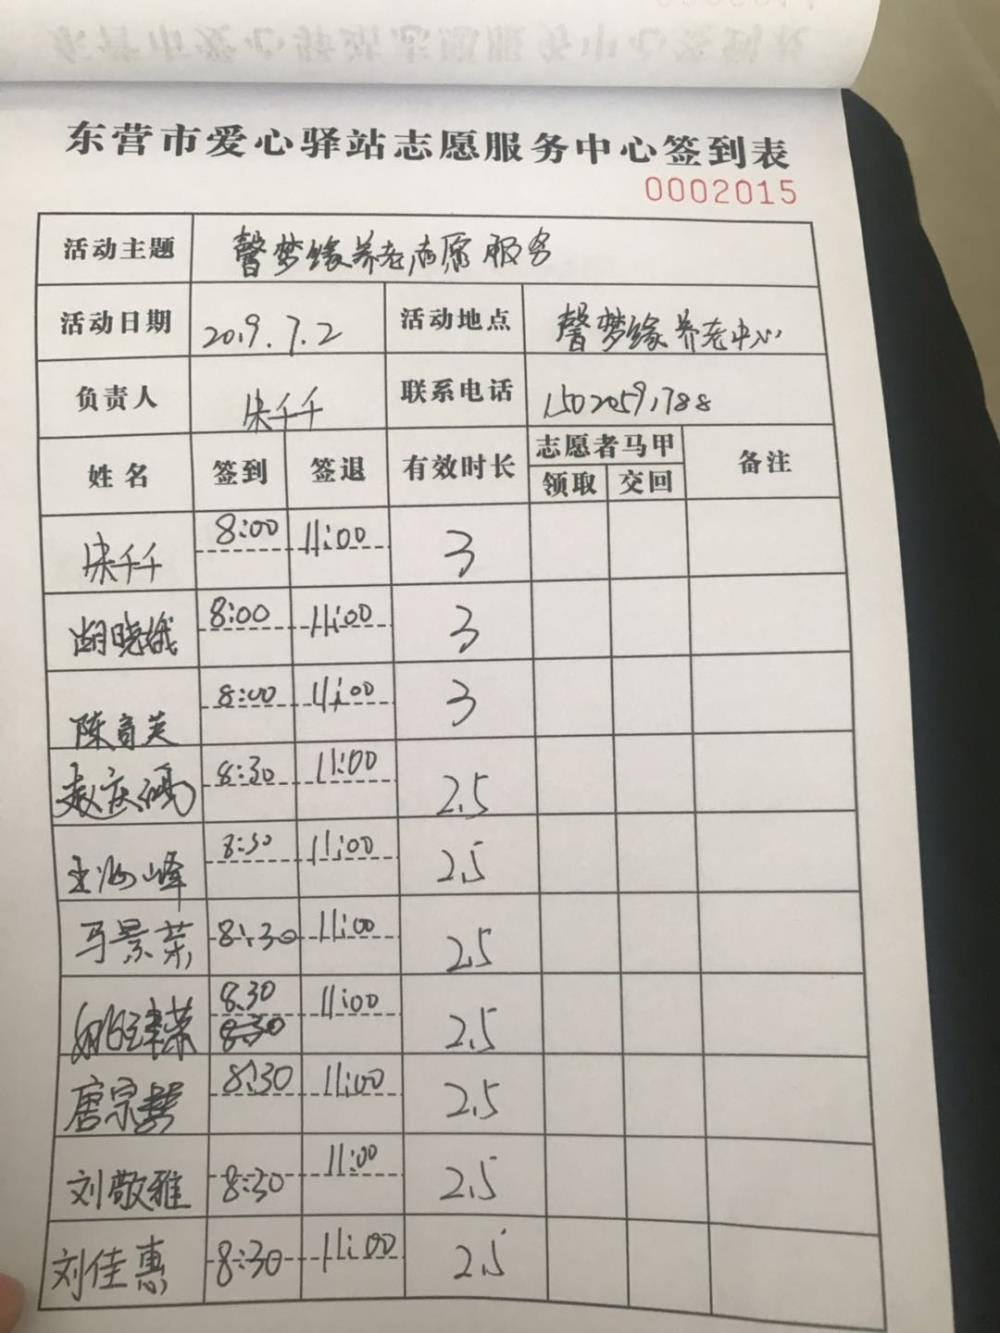 东营市爱心驿站志愿服务中心签到表
0002015
活动主题 馨梦缘养老志愿服务
活动日期 2019.7.2 活动地点 馨梦缘养老中心
负责人 千千 联系电话 15020591788
姓名 签到 签退 有效时长 志愿者马甲 备注
领取 交回
千千 8:00 11:00 3
胡晓娥 8:00 11:00 3
陈育英 8:00 11:00 3
赵庆鸿 8:30 11:00 2.5
王海峰 8:30 11:00 2.5
马景荣 8:30 11:00 2.5
8:30 11:00 2.5
8:30
唐宗 8:30 11:00 2.5
刘敬雅 8:30 11:00 2.5
刘佳惠 8:30 11:00 2.5